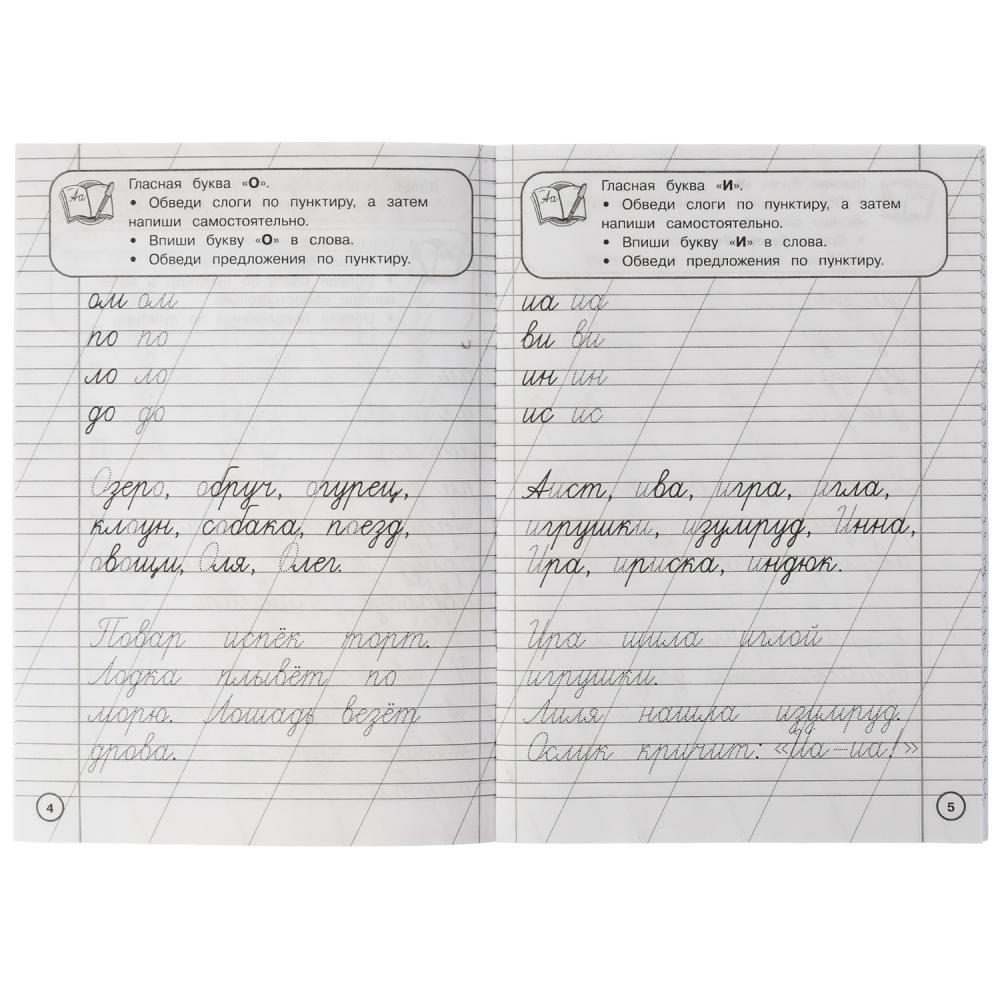 Гласная буква «О».
• Обведи слоги по пунктиру, а затем
напиши самостоятельно.
• Впиши букву «О» в слова.
• Обведи предложения по пунктиру.
ом ом
по по
ло ло
до до
Озеро, обруч, огурец,
клоун, собака, поезд,
овощи, Оля, Олег.
Повар испёк торт.
Лодка плывёт по
морю. Лошадь везёт
дрова.
4
Гласная буква «И».
• Обведи слоги по пунктиру, а затем
напиши самостоятельно.
• Впиши букву «И» в слова.
• Обведи предложения по пунктиру.
иа иа
ви ви
ин ин
ис ис
Аист, ива, игра, игла,
игрушки, изумруд, Инна,
Ира, ириска, индюк.
Ира шила иглой
игрушки.
Лиля нашла изумруд.
Ослик кричит: «Иа-иа!»
5